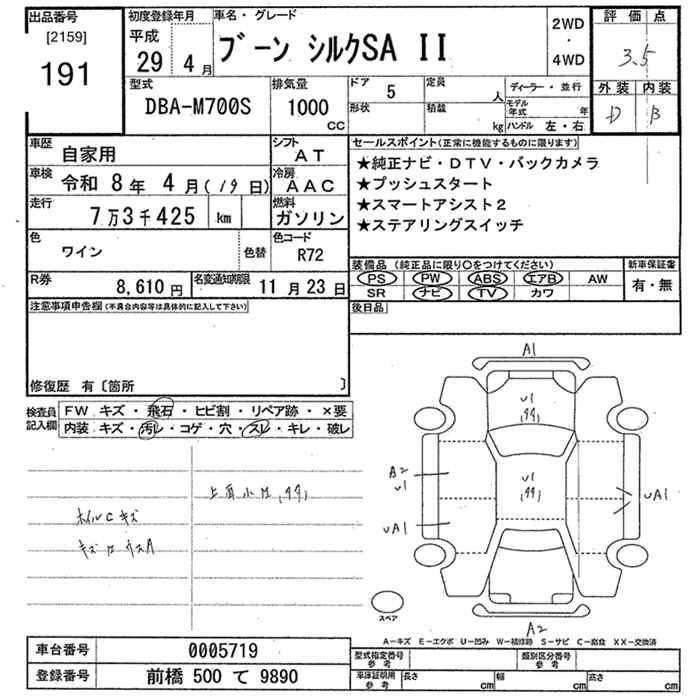 出品番号
[2159]
191
初度登録年月
平成
29年 4月
車名・グレード
ブーン シルクSA II
2WD
・
4WD
評価点
3.5
外装 内装
D B
型式
DBA-M700S
排気量
1000
CC
ドア 5
形状
定員 人
積載 kg
ディーラー・並行
モデル年式 年
ハンドル 左・右
車歴 自家用
シフト AT
車検 令和 8年 4月(19日)
冷房 AAC
走行 7万3千425 km
燃料 ガソリン
色 ワイン 色替
色コード R72
R券 8,610円
名変通知期限 11月23日
セールスポイント(正常に機能するものに限ります)
★純正ナビ・DTV・バックカメラ
★プッシュスタート
★スマートアシスト2
★ステアリングスイッチ
装備品(純正品に限り〇をつけてください)
PS PW ABS エアB AW
SR ナビ TV カワ
新車保証書
有・無
後日品
注意事項申告欄(不具合内容等は具体的に記入して下さい)
修復歴 有〔箇所 〕
検査員記入欄
FW キズ・飛石・ヒビ割・リペア跡・×要
内装 キズ・汚レ・コゲ・穴・スレ・キレ・破レ
ホイルCキズ
A1
U1
A2
U1
U1
UA1
UA1
A2
スペア
A−キズ E−エクボ U−凹み W−補修跡 S−サビ C−腐食 XX−交換済
車台番号 0005719
登録番号 前橋 500 て 9890
型式指定番号 参考
類別区分番号 参考
車庫証明用 参考
長さ cm
幅 cm
高さ cm